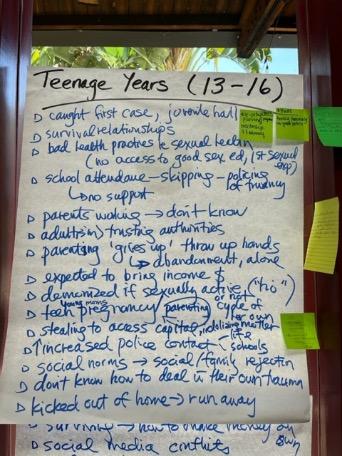 Teenage Years (13-16)
▷ caught first case, juvenile hall
▷ survival relationships
▷ bad health practices & sexual health
(no access to good sex ed, 1st sexual exp)
▷ school attendance - skipping - policing of truancy
↳ no support
▷ parents working → don't know
▷ trusting authorities
▷ parenting 'gives up' throw up hands
↳ abandonment, alone
▷ expected to bring income $
▷ demonized if sexually active, ("ho")
or not
young moms
▷ teen pregnancy (parenting) cycle of
her own
▷ stealing to access capital, idolizing
life
▷ ↑ increased police contact - schools
▷ social norms → social/family rejection
▷ don't know how to deal w their own trauma
▷ kicked out of home → run away
▷ surviving → how to make money on
own
▷ social media conflicts